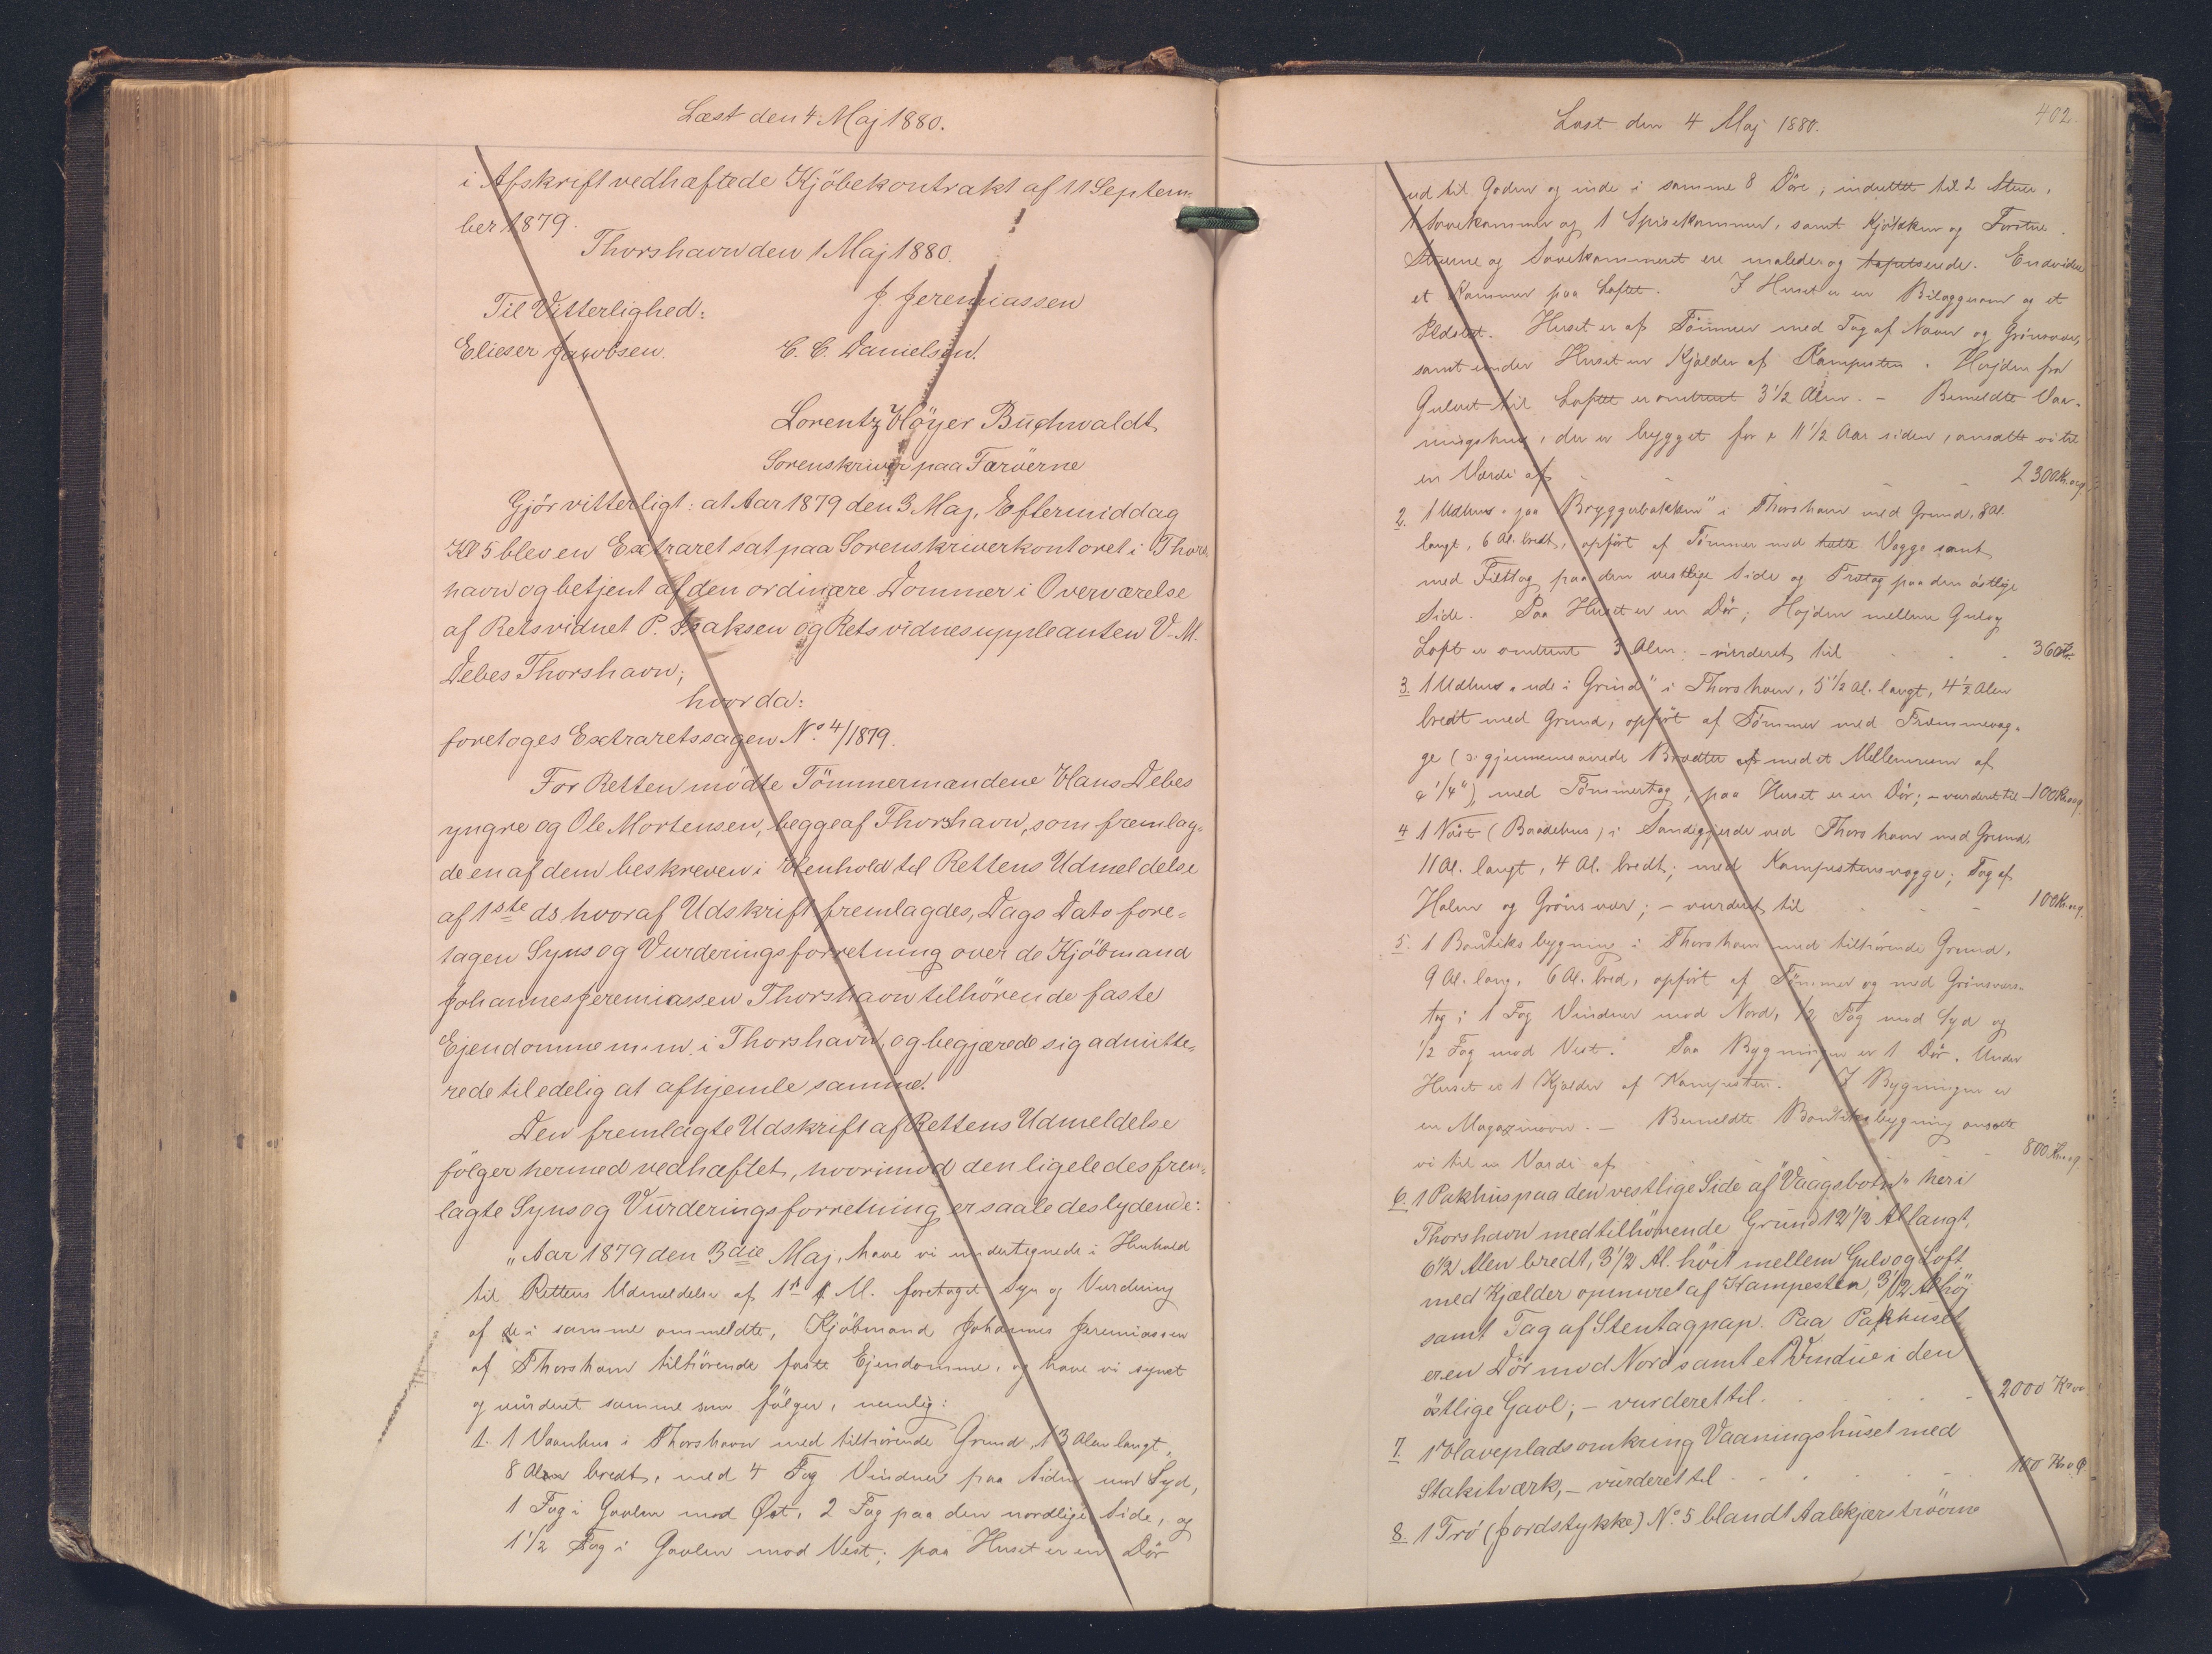 Læst den 4 Maj 1880.
i Afskrift vedhæftede Kjöbekontrakt af 11 Septem-
ber 1879.
Thorshavn den 1 Maj 1880.
J Jeremiassen
Til Vitterlighed:
Elieser Jacobsen. C. C. Danielsen.
Lorentz Höyer Buchwaldt
Sorenskriver paa Færöerne
Gjör vitterligt: at Aar 1879 den 3 Maj, Eftermiddag
Kl 5 blev en Extraret sat paa Sorenskriverkontoret i Thors
havn og betjent af den ordinære Dommer i Overværelse
af Retsvidnet P. Isaksen og Retsvidnesuppleanten V. M.
Debes Thorshavn;
hvor da:
foretoges Extraretssagen No 4/1879.
For Retten mödte Tömmermændene Hans Debes
yngre og Ole Mortensen, begge af Thorshavn, som fremlag-
de en af dem beskreven i Henhold til Rettens Udmeldelse
af 1ste ds hvoraf Udskrift fremlagdes, Dags Dato fore-
tagen Syns og Vurderingsforretning over de Kjöbmand
Johannes Jeremiassen Thorshavn tilhörende faste
Ejendomme m. m. i Thorshavn, og begjærede sig admitte-
rede til edelig at afhjemle samme.
Den fremlagte Udskrift af Rettens Udmeldelse
fölger hermed vedhæftet, hvorimod den ligeledes frem-
lagte Syns og Vurderingsforretning er saaledes lydende:
"Aar 1879 den 3die Maj, have vi undertegnede i Henhold
til Rettens Udmeldelse af 1st f. M. foretaget Syn og Vurdering
af de i samme ommeldte, Kjöbmand Johannes Jeremiassen
af Thorshavn tilhörende faste Ejendomme, og have vi synet
og vurderet samme som fölger, nemlig:
1. 1 Vaanhus i Thorshavn med tilhörende Grund, 13 Alen langt,
8 Alen bredt, med 4 Fag Vinduer paa Siden mod Syd,
1 Fag i Gavlen mod Øst, 2 Fag paa den nordlige Side, og
1 1/2 Fag i Gavlen mod Vest; paa Huset er en Dör
Læst den 4 Maj 1880.
402.
ud til Gaden og inde i samme 8 Döre, indrettet til 2 Stuer,
1 Sovekammer og 1 Spisekammer, samt Kjökken og Forstue.
Stuerne og Sovekammeret ere malede og tapetserede. Endvidere
et Kammer paa Loftet. I Huset er en Bilæggerovn og et
Ildsted. Huset er af Tömmer med Tag af Næver og Grönsvær,
samt under Huset en Kjælder af Kampesten. Højden fra
Gulvet til Loftet er omtrent 3 1/2 Alen. - Bemeldte Vaa-
ningshus, der er bygget for 11 1/2 Aar siden, ansætte vi til
en Værdi af 2300 Kr.
2. 1 Udhus "paa Bryggerbakken" i Thorshavn med Grund, 8 Al.
langt, 6 Al. bredt, opfört af Tömmer med tætte Vægge samt
med Fjeltag paa den vestlige Side og paa den östlige
Side. Paa Huset er en Dör; Højden mellem Gulv og
Loft er omtrent 3 Alen; - vurderet til 360 Kr.
3. 1 Udhus "ude i Grind" i Thorshavn, 5 1/2 Al. langt, 4 1/2 Alen
bredt med Grund, opfört af Tömmer med Tremmevæg-
ge (o: gjennemsavede Brædter med et Mellemrum af
a 1/4"), med Tömmertag; paa Huset er en Dör; - vurderet til 100 Kr.
4 1 Nöst (Baadehus) i Sandigjerde ved Thorshavn med Grund,
11 Al. langt, 4 Al. bredt; med Kampestensvægge; Tag af
Halm og Grönsvær; - vurderet til 100 Kr.
5. 1 Boutiksbygning i Thorshavn med tilhörende Grund,
9 Al. lang, 6 Al. bred, opfört af Tömmer og med Grönsværs-
tag; 1 Fag Vinduer mod Nord, 1/2 Fag mod Syd og
1/2 Fag mod Vest. Paa Bygningen er 1 Dör. Under
Huset er 1 Kjælder af Kampesten. I Bygningen er
en Magazinovn. - Bemeldte Boutiksbygning ansætte
vi til en Værdi af 800 Kr.
6. 1 Pakhus paa den vestlige Side af "Vaagsbotn" her i
Thorshavn med tilhörende Grund 12 1/2 Al langt,
6 1/2 Alen bredt, 3 1/2 Al. höit mellem Gulv og Loft
med Kjælder opmuret af Kampesten, 3 1/2 Al höj
samt Tag af Stentagpap. Paa Pakhuset
er en Dör mod Nord samt et Vindue i den
östlige Gavl; - vurderet til. 2000 Kr
7. 1 Haveplads omkring Vaaningshuset med
Stakitværk, - vurderet til 100 Kr
8. 1 Trö (Jordstykke) No 5 blandt Aalekjærströerne